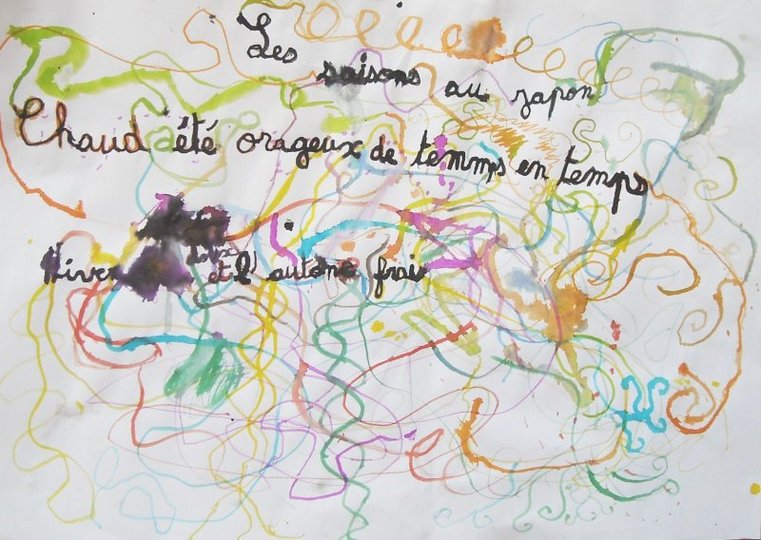 Les
saisons au japon
Chaud été orageux de temmps en temps
Hiver doux et l' autone frais